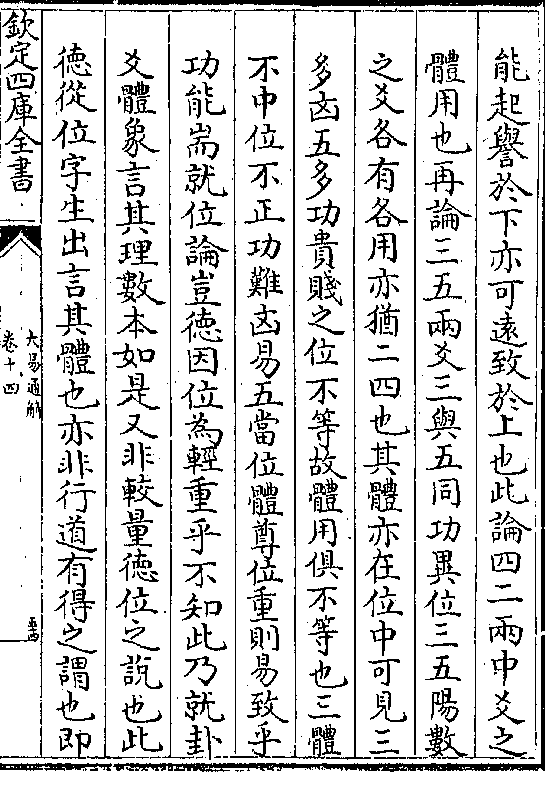 能起譽於下亦可遠致於上也此論四二兩中爻之
體用也再論三五兩爻三與五同功異位三五陽數
之爻各有各用亦猶二四也其體亦在位中可見三
多凶五多功貴賤之位不等故體用俱不等也三體
不中位不正功難凶易五當位體尊位重則易致乎
功能耑就位論豈德因位為輕重乎不知此乃就卦
爻體象言其理數本如是又非較量德位之說也此
德從位字生出言其體也亦非行道有得之謂也即
欽定四庫全書
大易通解
卷十四